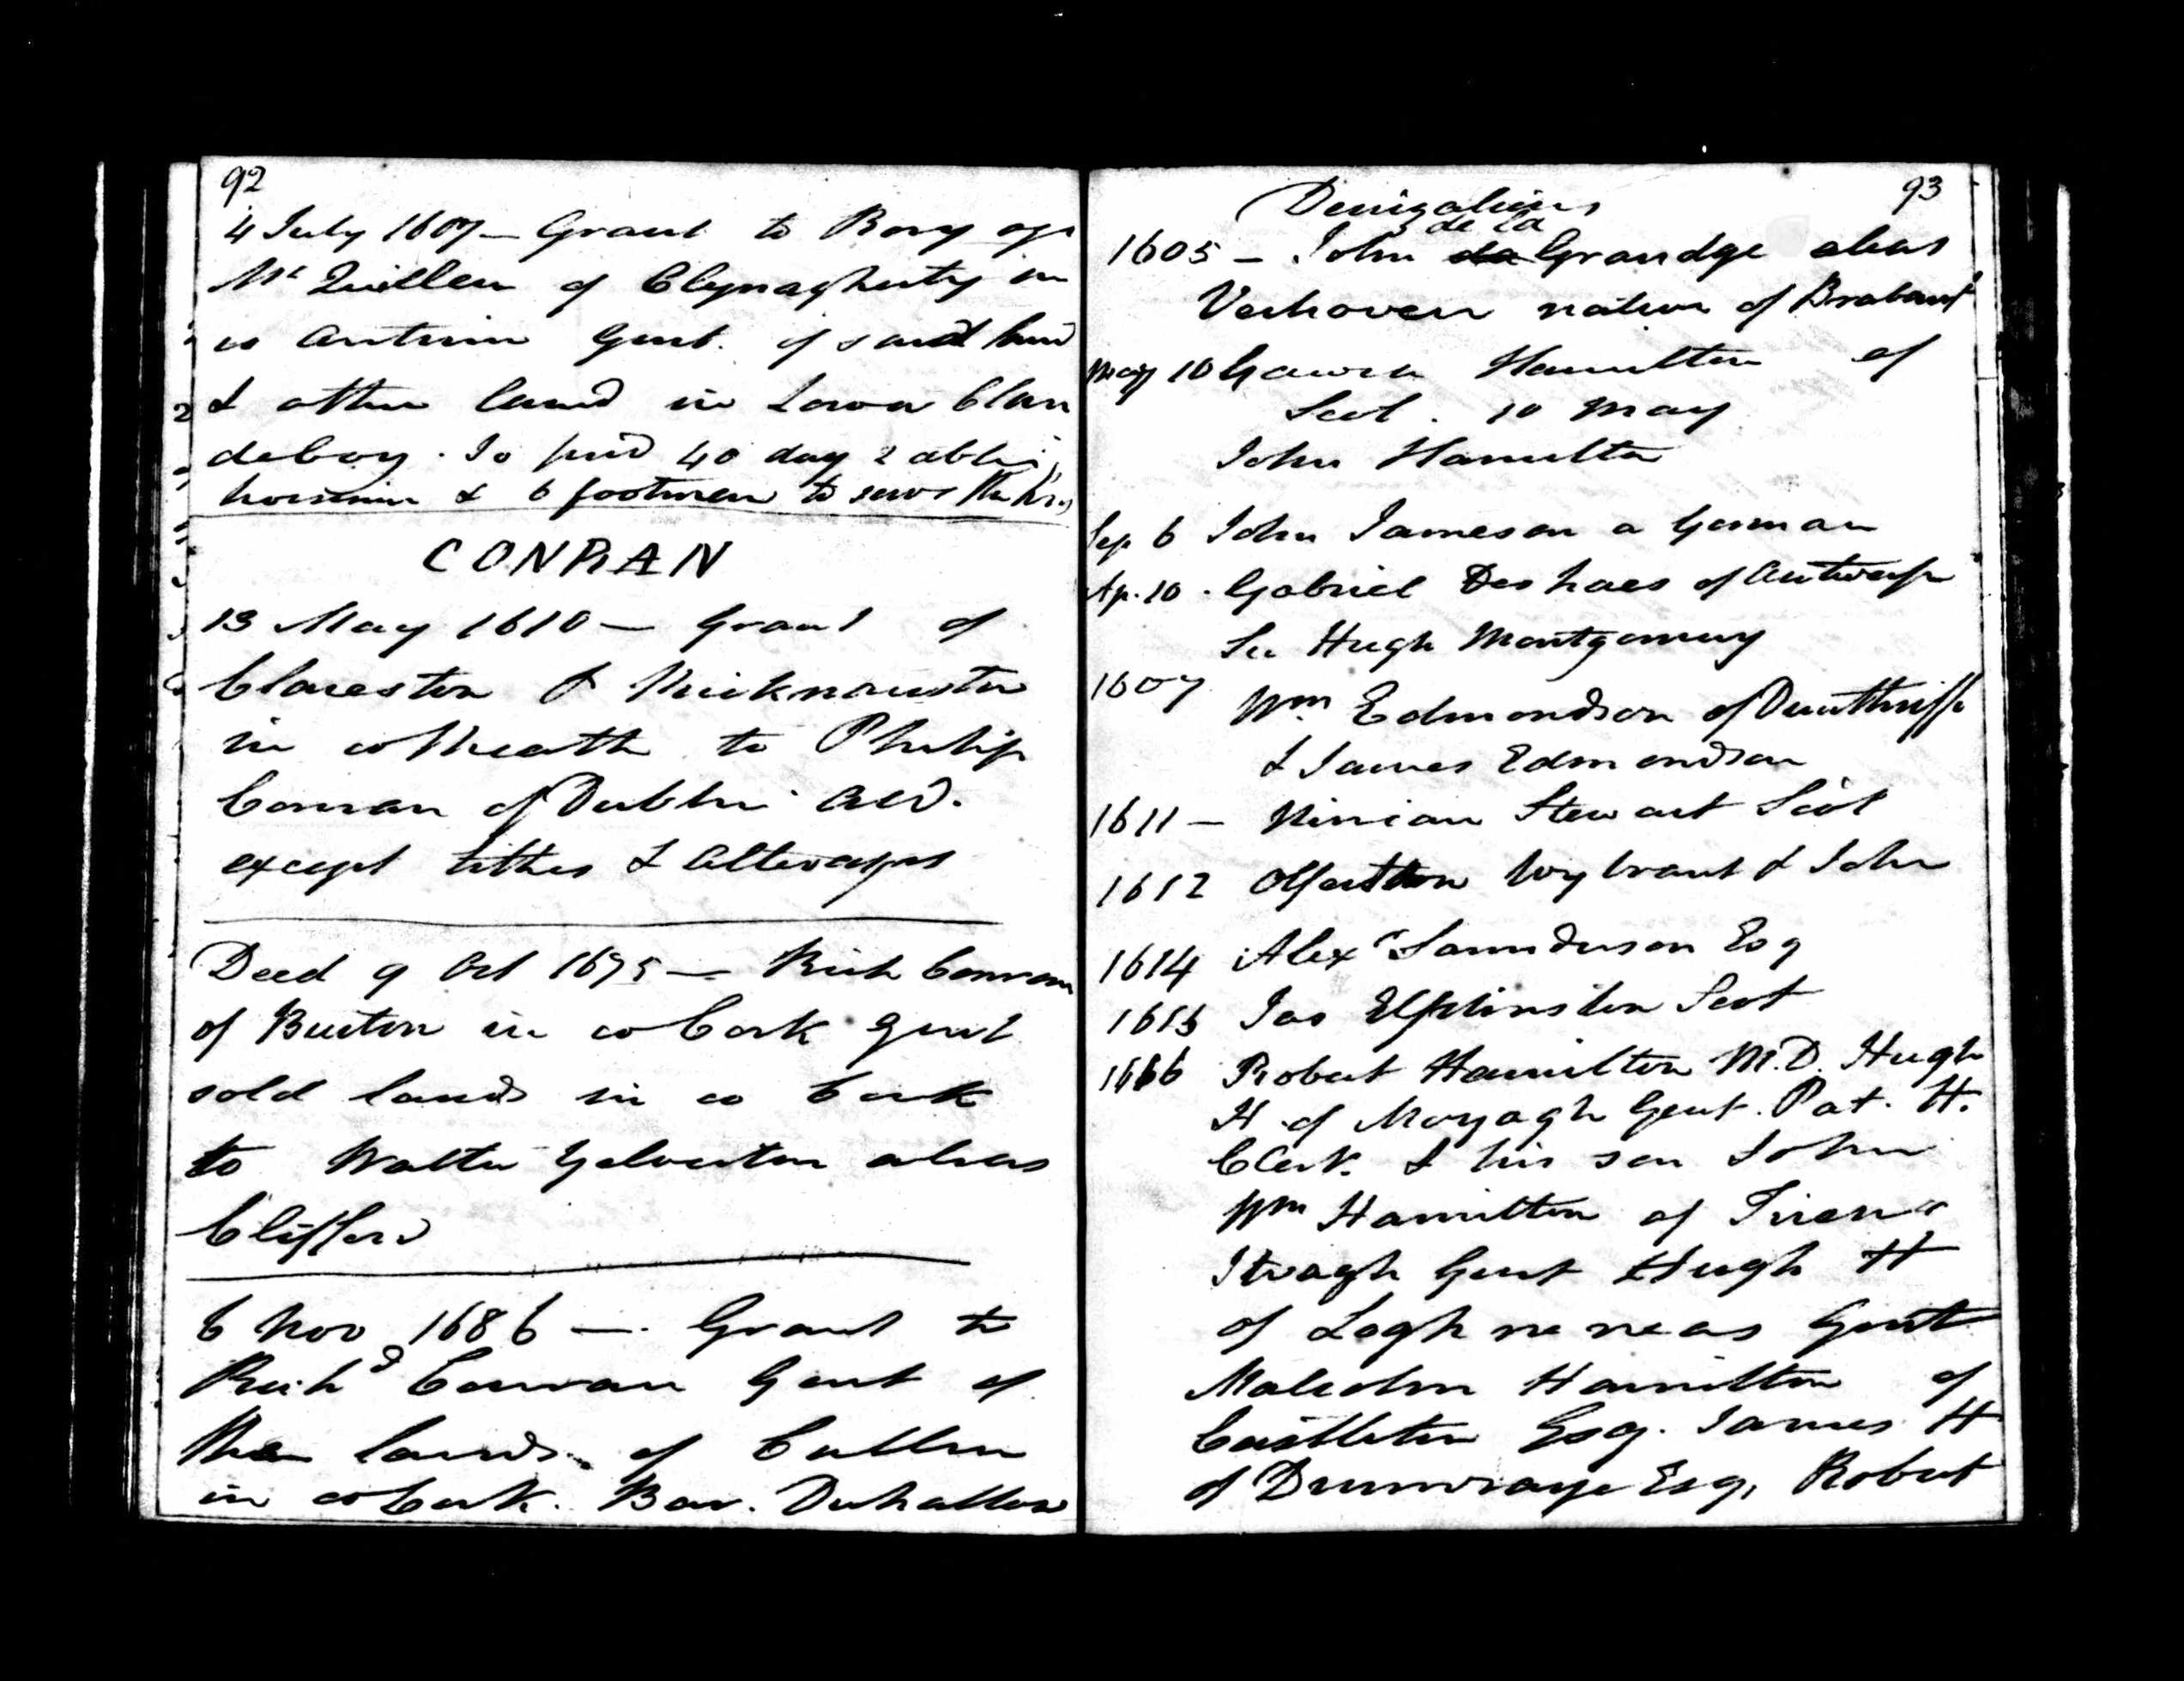 92
4 July 1607 — Grant to Rory oge
Mc Quillen of Clynagherty in
co Antrim Gent. of said land
& other land in Lower Clan
deboy. To find 40 day 2 able
horsemen & 6 footmen to serve the
CONRAN
13 May 1610 — Grant of
Clareston &
in co Meath to Philip
Conran of Dublin Ald.
except tithes & Alterages
Deed 9 Oct 1675 — Rich Conran
of Buiton in co Cork gent
sold lands in co Cork
to Walter Yelverton alias
Clifford
6 Nov 1686 — Grant to
Richd Conran Gent of
the lands of Cullen
in co Cork. Bar. Duhallow
93
Denizations
de la
1605 — John Grandge alias
Verhoven native of Brabant
May 10 Gawen Hamilton of
Scot. 10 May
John Hamilton
Sep 6 John Jameson a German
Ap. 10 . Gabriel Deshaes of Antwerp
Sir Hugh Montgomery
1607 Wm Edmondson of
& James Edmondson
1611 — Ninian Stewart Scot
1612 Wybrant & John
1614 Alexr Saunderson Esq
1615 Jas Elphinston Scot
1616 Robert Hamilton M.D. Hugh
H of Moyagh Gent. Pat. H.
Clerk. & his son John
Wm Hamilton of
Gent Hugh H
of Loghneneas Gent
Malcolm Hamilton of
Castleton Esq. James H
of Drumraye Esq, Robert